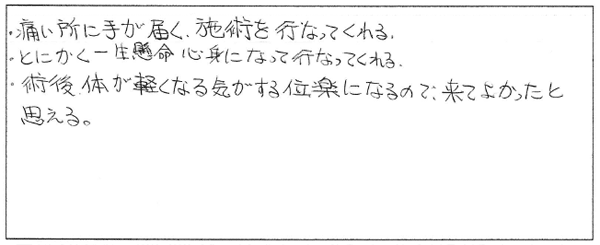 ・痛い所に手が届く、施術を行なってくれる。
・とにかく一生懸命心身になって行なってくれる。
・術後、体が軽くなる気がする位楽になるので、来てよかったと
思える。